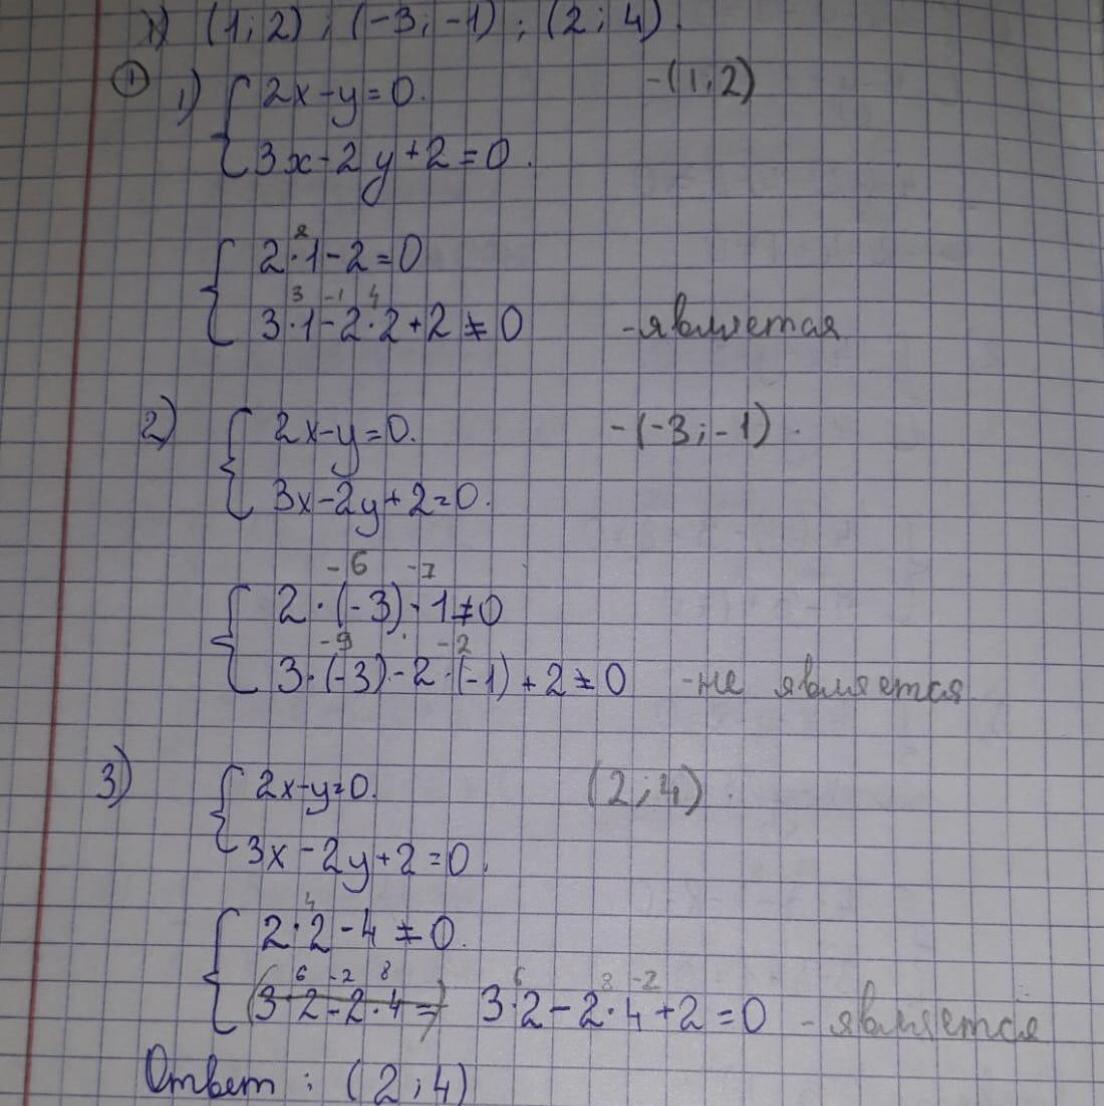 1) (1; 2); (-3; -1); (2; 4).
1) { 2x-y=0. -(1; 2)
3x-2y+2=0.
{ 2·1-2=0
3·1-2·2+2≠0 -является
2) { 2x-y=0. -(-3;-1).
3x-2y+2=0.
-6 -7
{ 2·(-3)-1≠0
-9 -2
3·(-3)-2·(-1)+2≠0 -не является
3) { 2x-y=0. (2; 4).
3x-2y+2=0.
4
{ 2·2-4≠0.
6 -2 8 6 8 -2
(3·2-2·4=) 3·2-2·4+2=0 -является
Ответ: (2; 4)